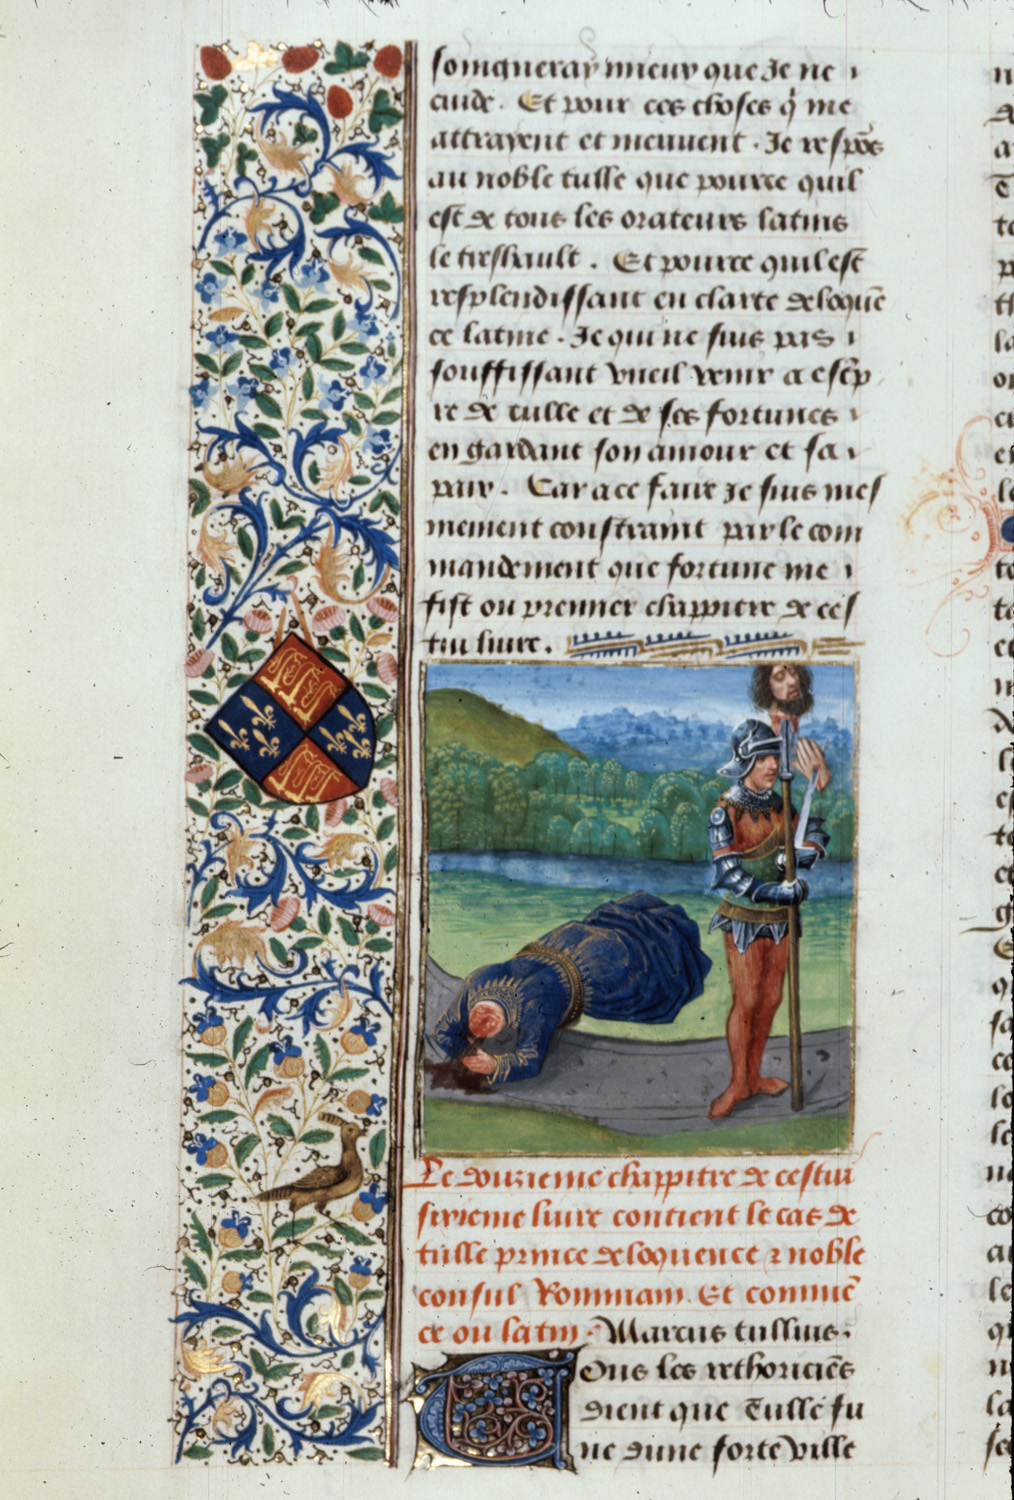 soingneray mieux que Je ne
cuide. Et pour ces choses q̄ me
attrayent et meuvent. Je respōs
au noble tulle que pource quil
est de tous les orateurs latins
le treshault. Et pource quil est
resplendissant en clarte deloquē
ce latine. Je qui ne suis pas
souffissant vueil venir a escp̄
re de tulle et de ses fortunes
en gardant son amour et sa
paix. Car a ce faire Je suis mes
mement constraint par le com
mandement que fortune me
fist ou premier chappitre de ces
tui livre.
Le douzieme chappitre de cestui
sixieme livre contient le cas de
tulle prince deloquence ⁊ noble
consul Rommain. Et commē
ce ou latin. Marcus tullius.
Tous les rethoriciēs
dient que Tulle fu
ne dune forte ville